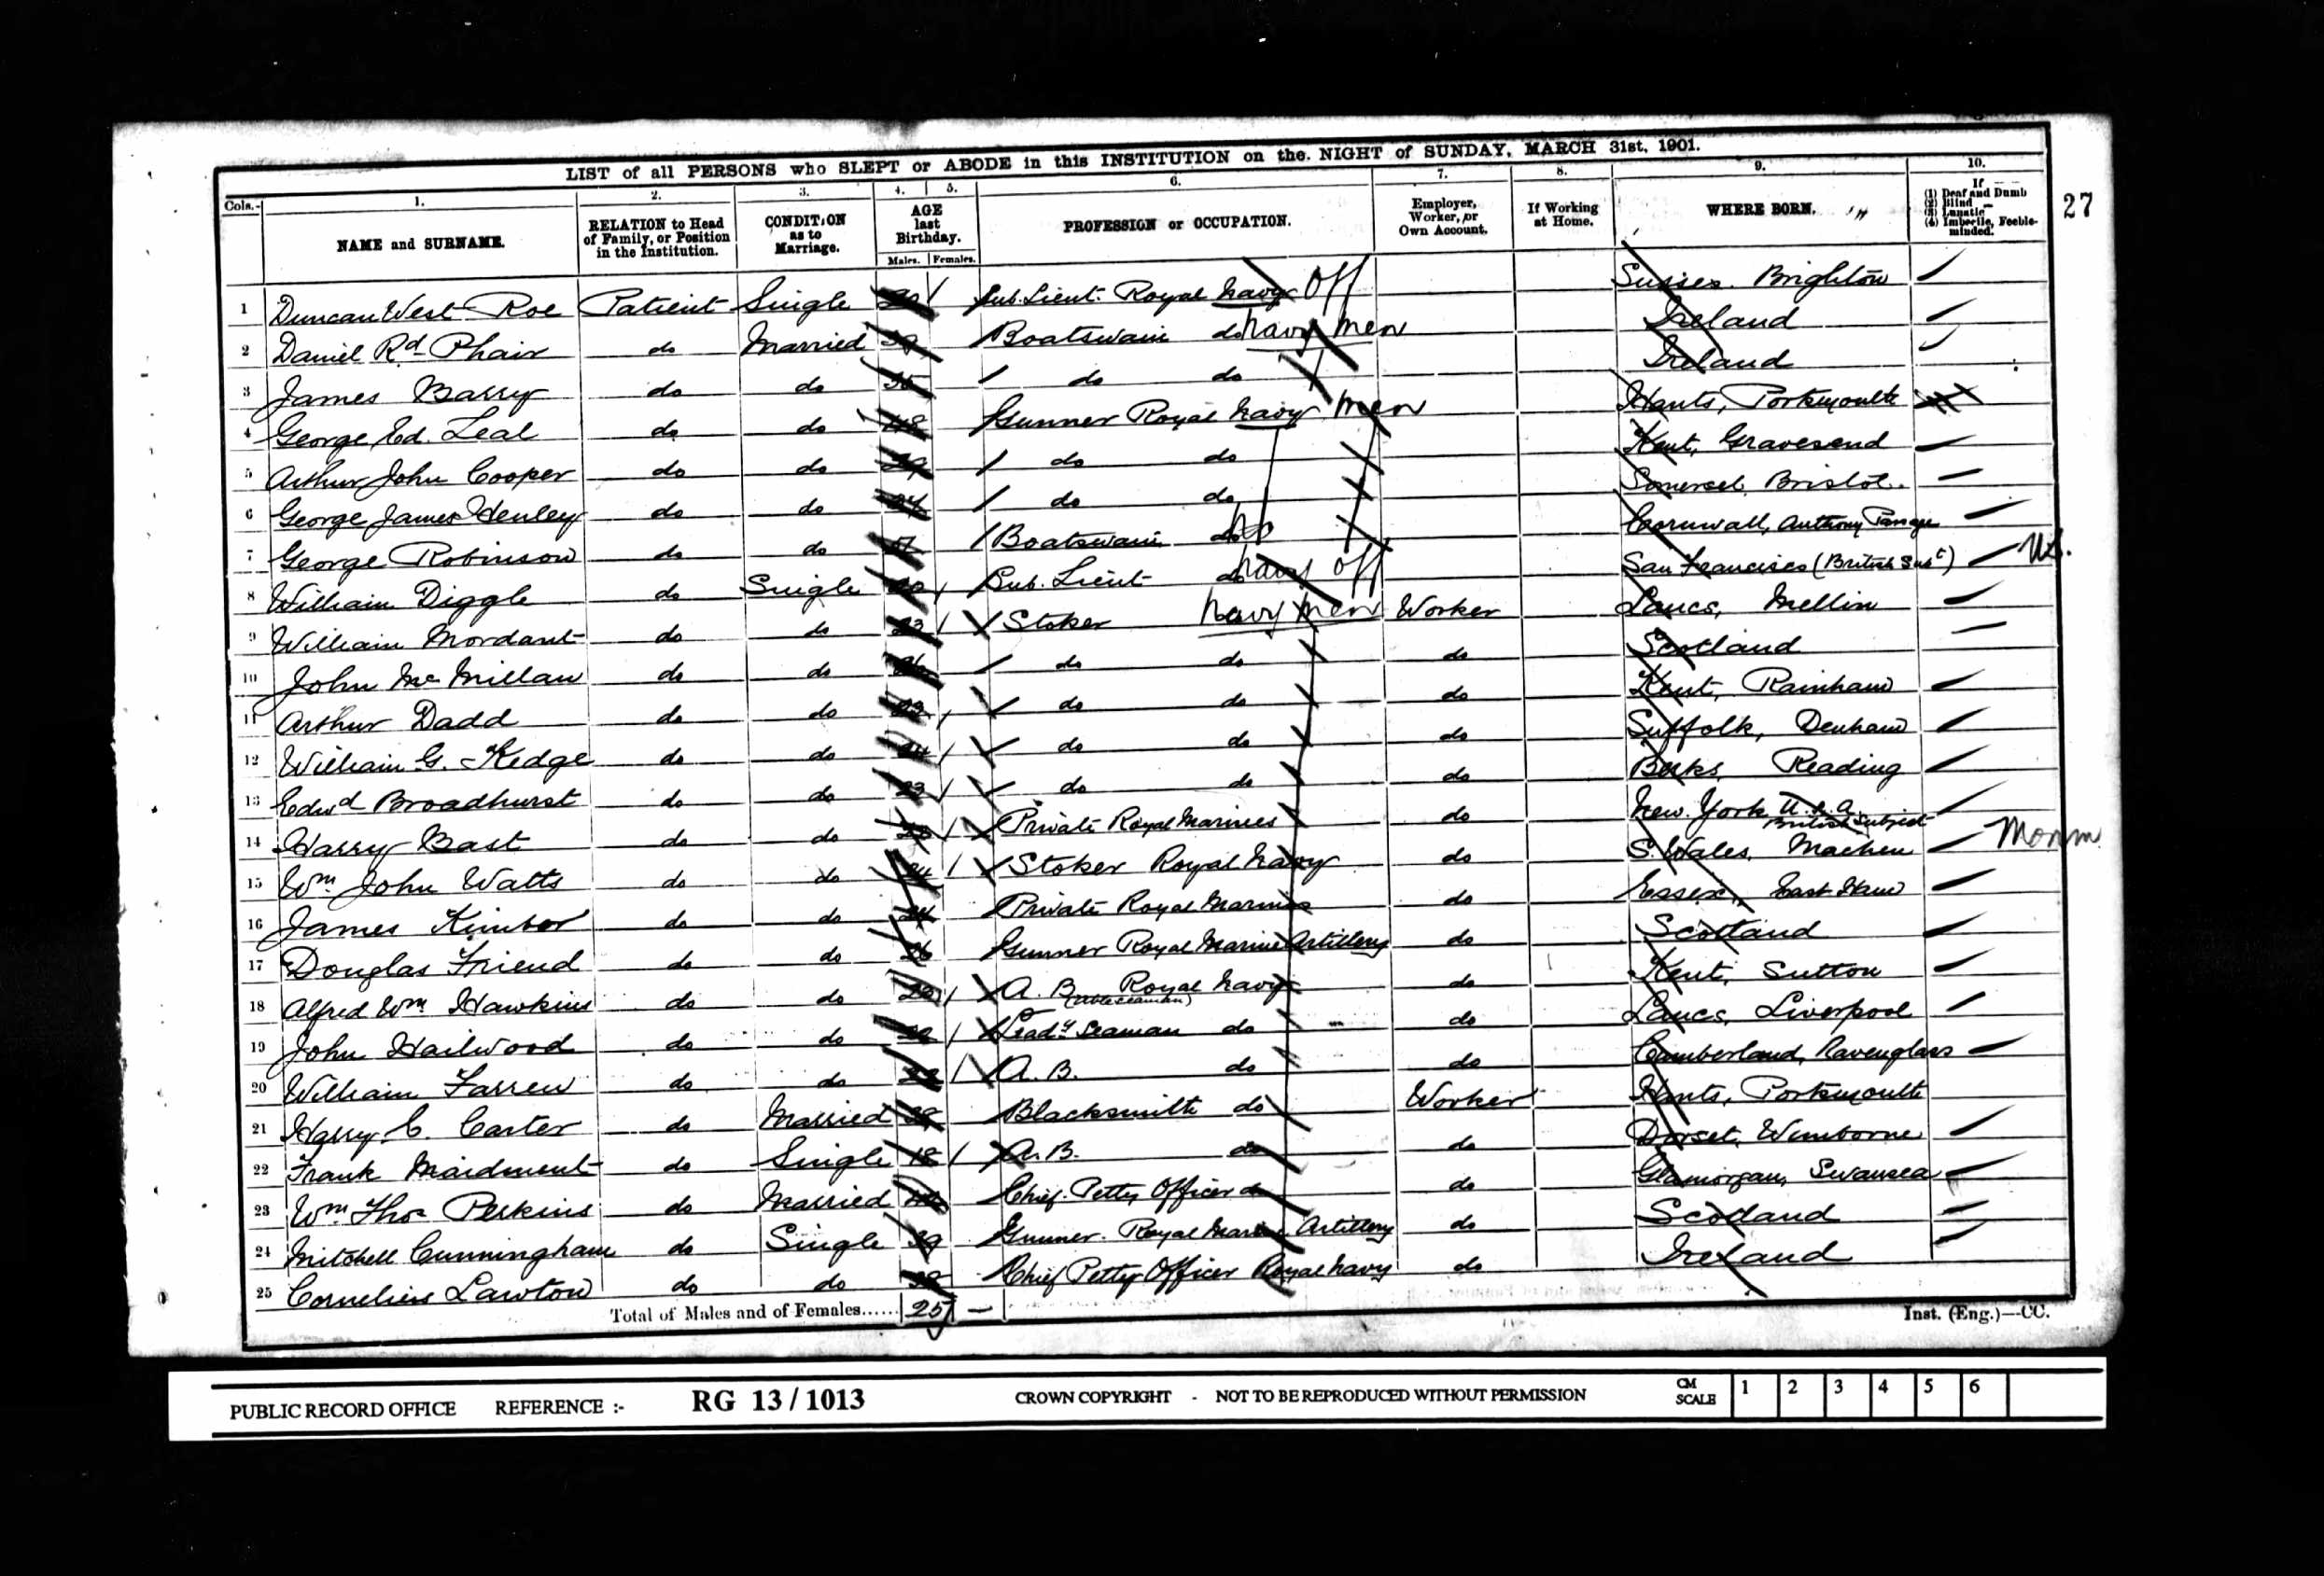 LIST of all PERSONS who SLEPT or ABODE in this INSTITUTION on the NIGHT of SUNDAY, MARCH 31st, 1901.
Cols.- 1. 2. 3. 4. 5. 6. 7. 8. 9. 10.
NAME and SURNAME. RELATION to Head of Family, or Position in the Institution. CONDITION as to Marriage. AGE last Birthday. Males. Females. PROFESSION or OCCUPATION. Employer, Worker, or Own Account. If Working at Home. WHERE BORN. If (1) Deaf and Dumb (2) Blind (3) Lunatic (4) Imbecile, Feeble-minded.
27
1 Duncan West Roe Patient Single Sub. Lieut. Royal Navy Off Sussex. Brighton
2 Daniel Rd Phair do Married Boatswain do Navy Men Ireland
3 James Barry do do do do Ireland
4 George Ed. Leal do do 48 Gunner Royal Navy Men Hants, Portsmouth
5 Arthur John Cooper do do 29 do do Kent, Gravesend
6 George James Henley do do do do Somerset, Bristol.
7 George Robinson do do Boatswain do Cornwall, Anthony Passage
8 William Diggle do Single Sub. Lieut do Navy Off San Francisco (British Subt) U.S.
9 William Mordant do do 23 Stoker Navy Men Worker Lancs, Mellin
10 John Mc Millan do do do do do Scotland
11 Arthur Dadd do do 23 do do do Kent, Rainham
12 William G. Kedge do do 24 do do do Suffolk, Denham
13 Edwd Broadhurst do do 23 do do do Berks, Reading
14 Harry Bast do do Private Royal Marines do New York U.S.A. British Subject
15 Wm John Watts do do 24 Stoker Royal Navy do S. Wales, Machen Monm
16 James Kimber do do 24 Private Royal Marines do Essex, East Ham
17 Douglas Friend do do 26 Gunner Royal Marine Artillery do Scotland
18 Alfred Wm Hawkins do do A. B. (Able Seaman) Royal Navy do Kent, Sutton
19 John Hailwood do do Leadg Seaman do do Lancs, Liverpool
20 William Farren do do A. B. do do Cumberland, Ravenglass
21 Harry C. Carter do Married Blacksmith do Worker Hants, Portsmouth
22 Frank Maidment do Single 18 A. B. do do Dorset, Wimborne
23 Wm Thos Perkins do Married Chief Petty Officer do do Glamorgan, Swansea
24 Mitchell Cunningham do Single 39 Gunner Royal Marine Artillery do Scotland
25 Cornelius Lawton do do Chief Petty Officer Royal Navy do Ireland
Total of Males and of Females...... 25 —
Inst. (Eng.)—CC.
PUBLIC RECORD OFFICE REFERENCE :- RG 13 / 1013 CROWN COPYRIGHT - NOT TO BE REPRODUCED WITHOUT PERMISSION CM SCALE 1 2 3 4 5 6